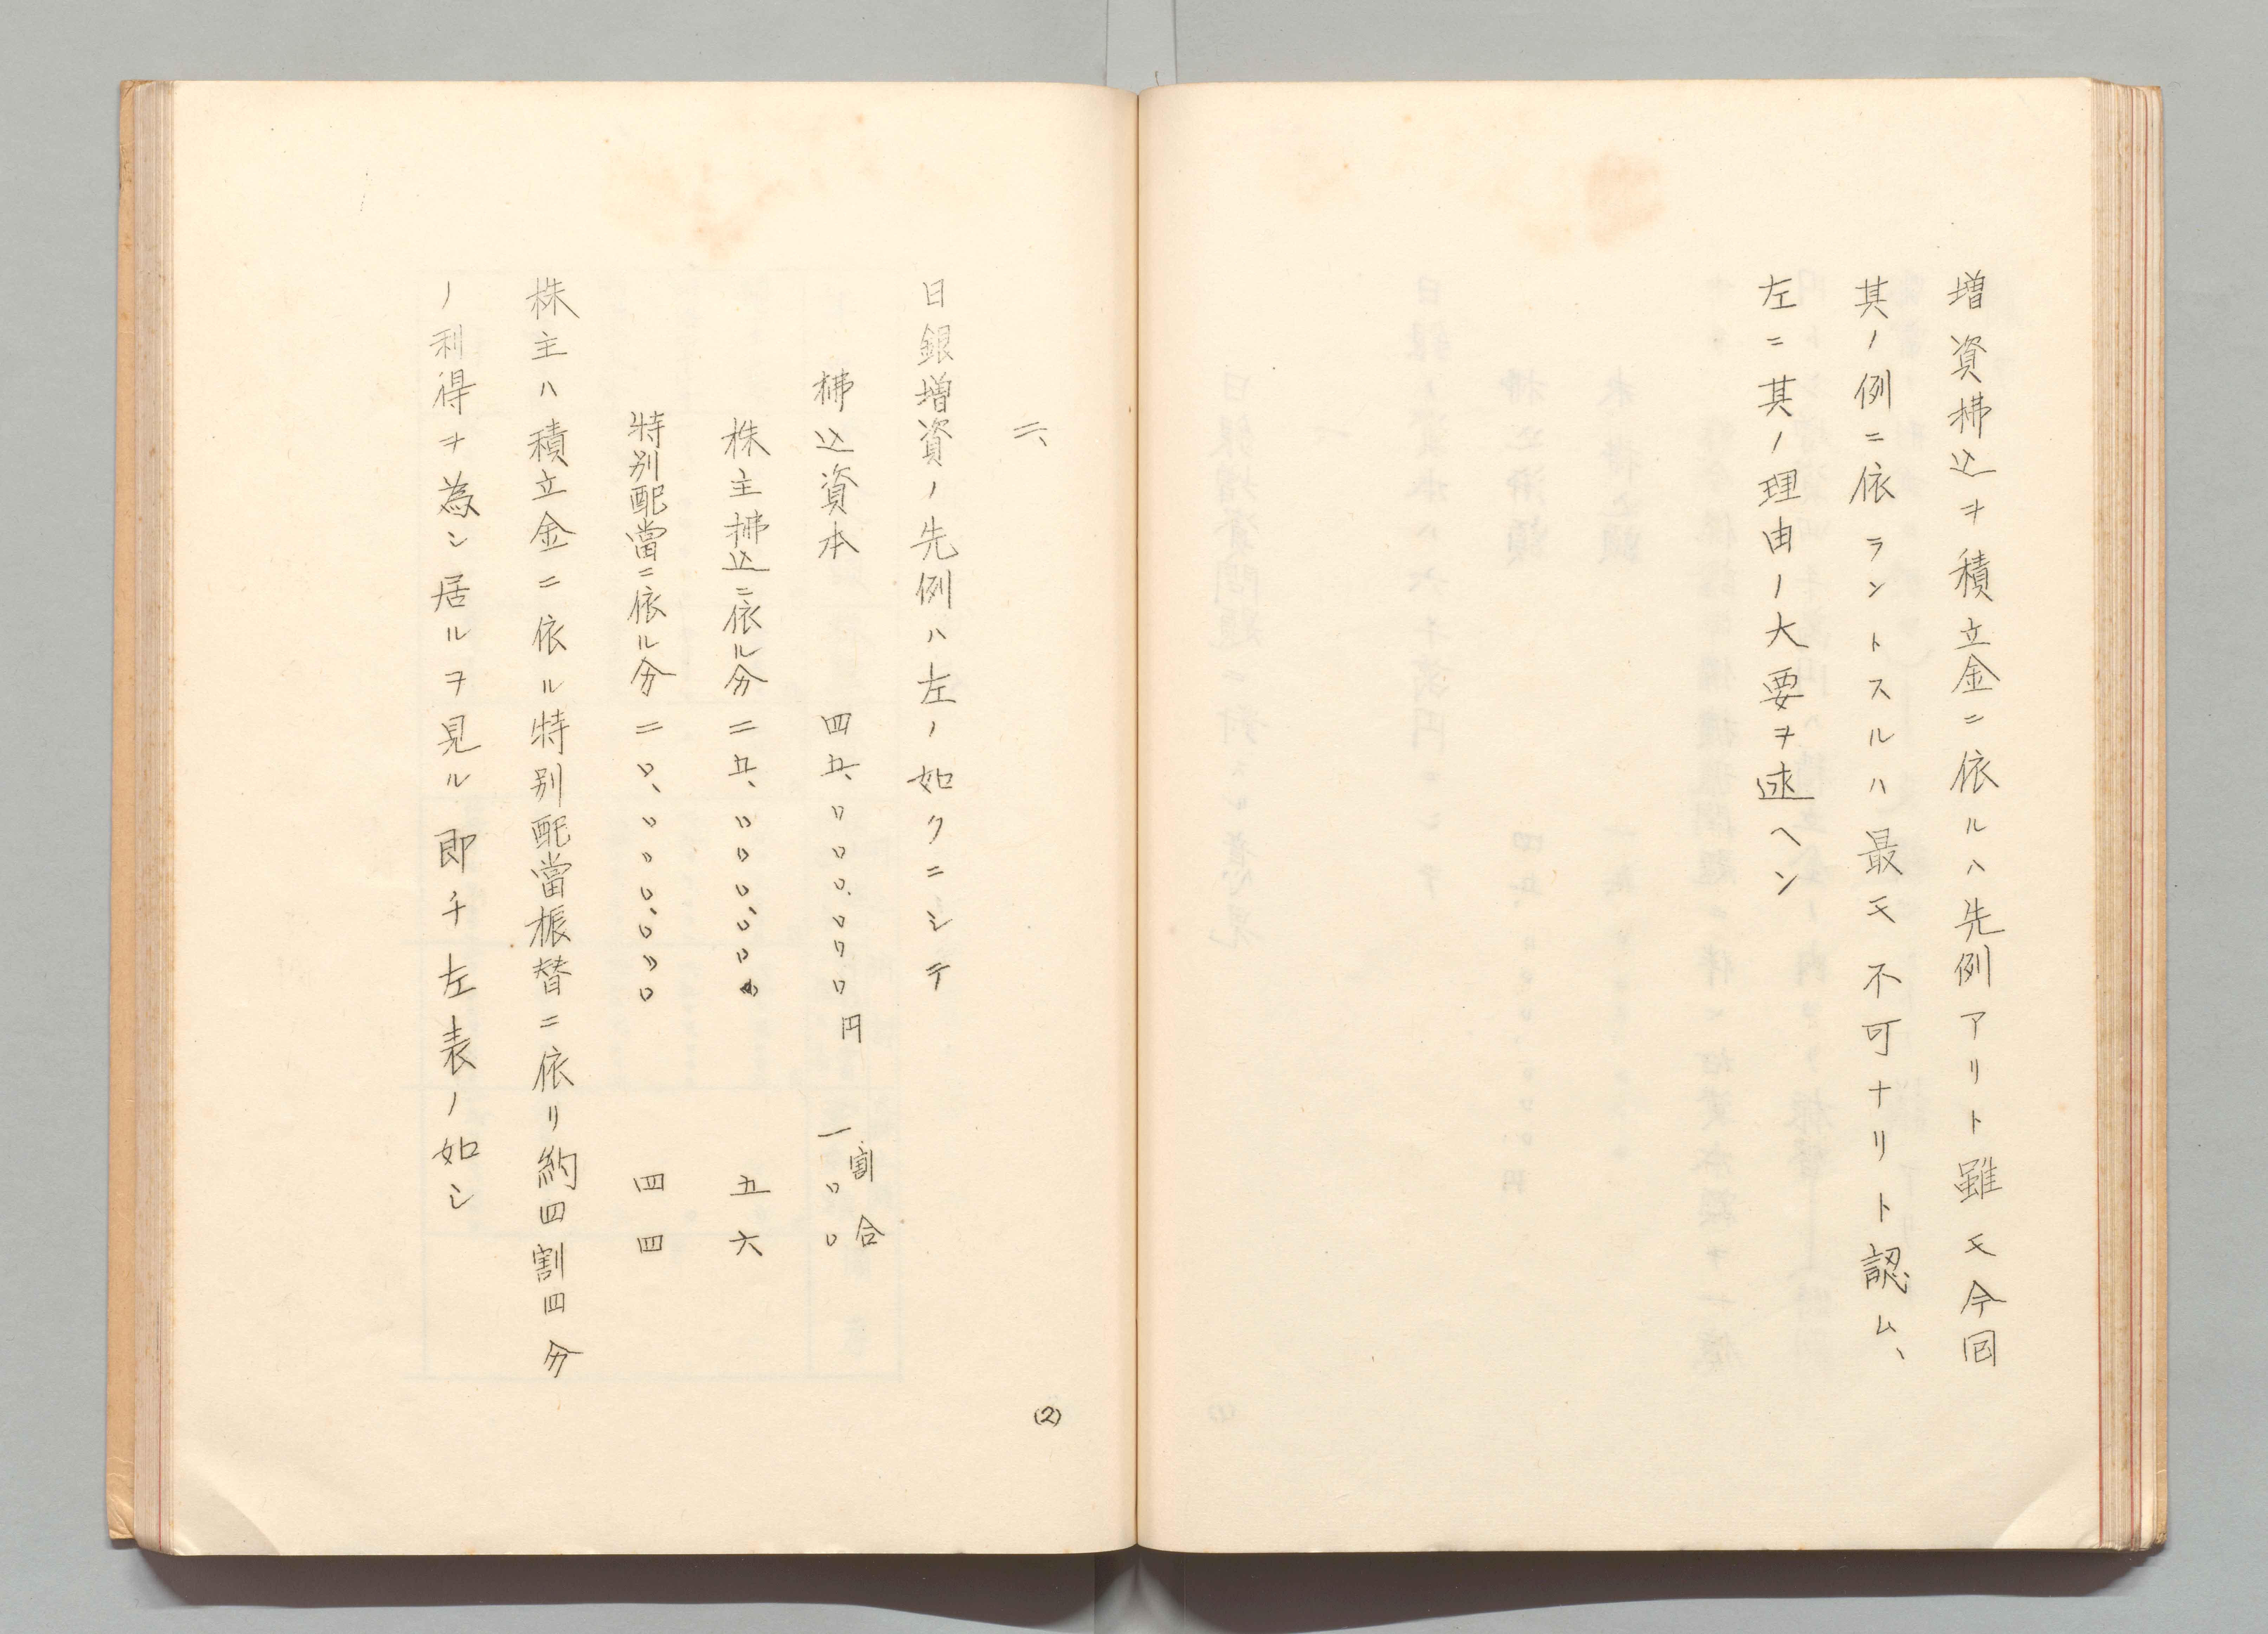 増資拂込ヲ積立金ニ依ルハ先例アリト雖モ今回
其ノ例ニ依ラントスルハ最モ不可ナリト認ム、
左ニ其ノ理由ノ大要ヲ述ヘン
二、
日銀増資ノ先例ハ左ノ如クニシテ
割合
拂込資本 四五、〇〇〇、〇〇〇円 一〇〇
株主拂込ニ依ル分 二五、〇〇〇、〇〇〇 五六
特別配當ニ依ル分 二〇、〇〇〇、〇〇〇 四四
株主ハ積立金ニ依ル特別配當振替ニ依リ約四割四分
ノ利得ヲ為シ居ルヲ見ル即チ左表ノ如シ
(2)